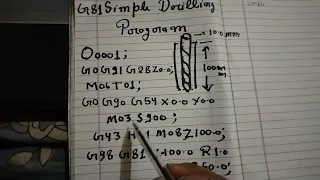 G81 Simple Drilling
Program
10.0mm
O0001;
100mm
G0 G91 G28 Z0.0;
M06 T01;
G0 G90 G54 X0.0 Y0.0
M03 S900;
G43 H1 M08 Z100.0;
G98 G81 Z-100.0 R1.0
50.0;